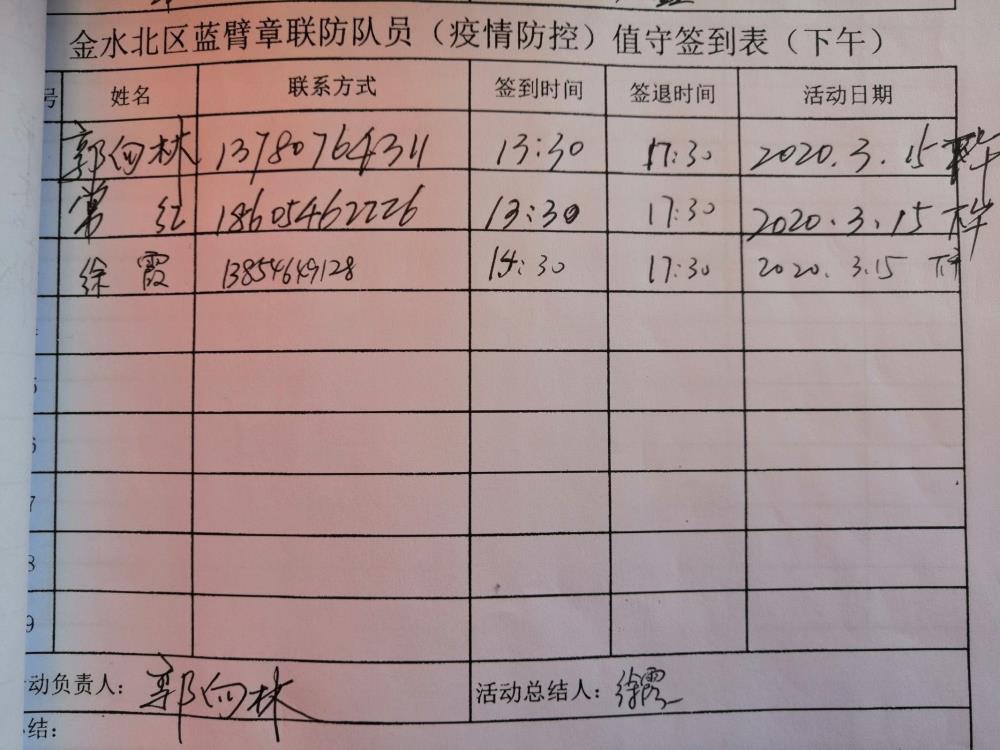 金水北区蓝臂章联防队员（疫情防控）值守签到表（下午）
号 姓名 联系方式 签到时间 签退时间 活动日期
郭向林 13780764311 13:30 17:30 2020.3.15 下午
常红 18605462226 13:30 17:30 2020.3.15 下午
徐霞 13854649128 14:30 17:30 2020.3.15 下午
5
6
7
8
9
动负责人：郭向林 活动总结人：徐霞
结：